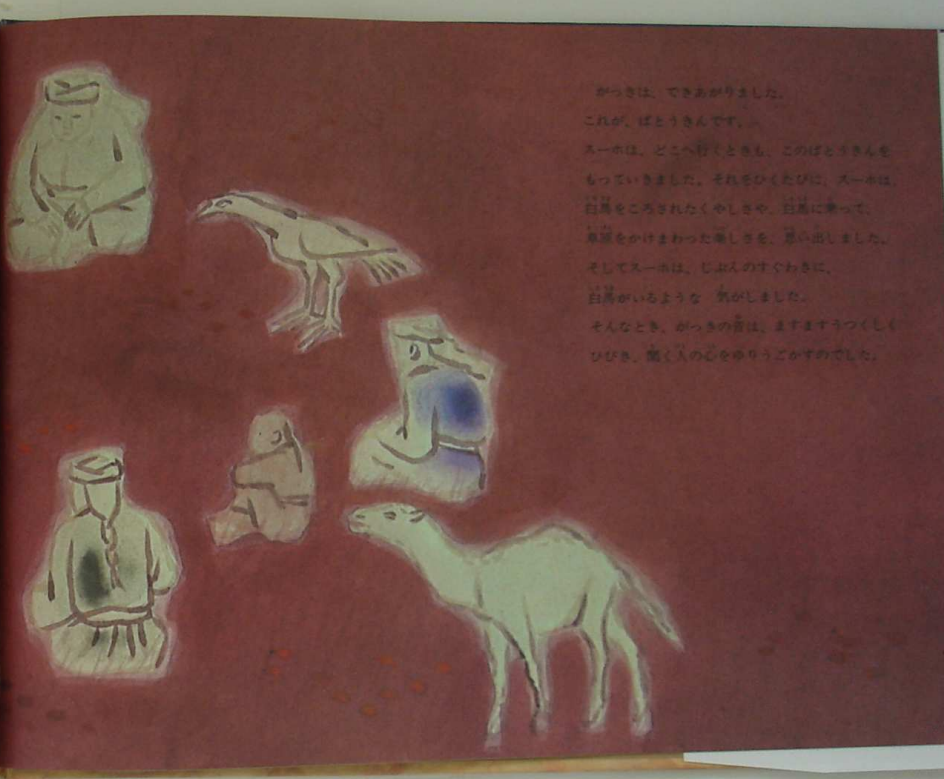 がっきは、できあがりました。
これが、ばとうきんです。
スーホは、どこへ行くときも、このばとうきんを
もっていきました。それをひくたびに、スーホは、
白馬をころされたくやしさや、白馬に乗って、
草原をかけまわった楽しさを、思い出しました。
そしてスーホは、じぶんのすぐわきに、
白馬がいるような 気がしました。
そんなとき、がっきの音は、ますますうつくしく
ひびき、聞く人の心をゆりうごかすのでした。